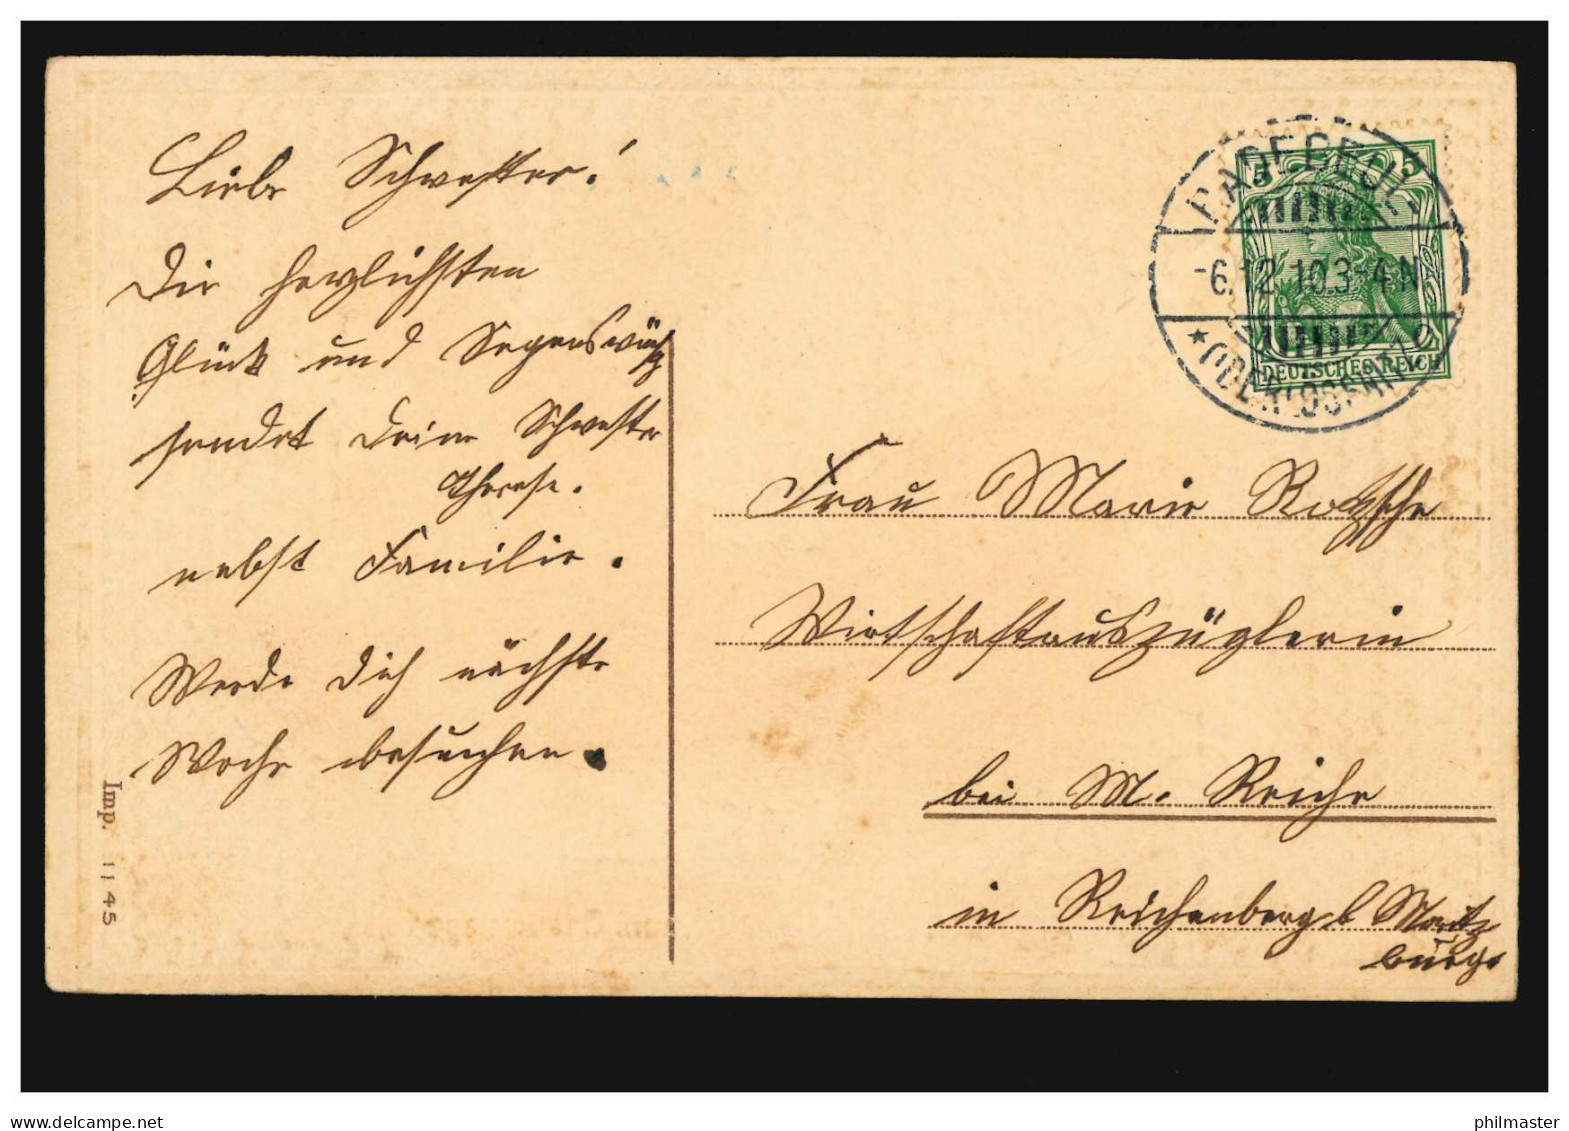 Liebe Schwester!
Die herzlichsten
Glück und Segenswünsche
sendet Deine Schwester
Therese.
nebst Familie.
Werde Dich nächste
Woche besuchen.
Imp. 1145
RADEBEUL
5 5
-6.12.10.3-4N.
DEUTSCHES REICH
* (OBERLÖSSNITZ)
Frau Marie
Wirtschaftsauszüglerin
bei M. Reiche
in Reichenberg b Moritz
burg.
delcampe.net
philmaster